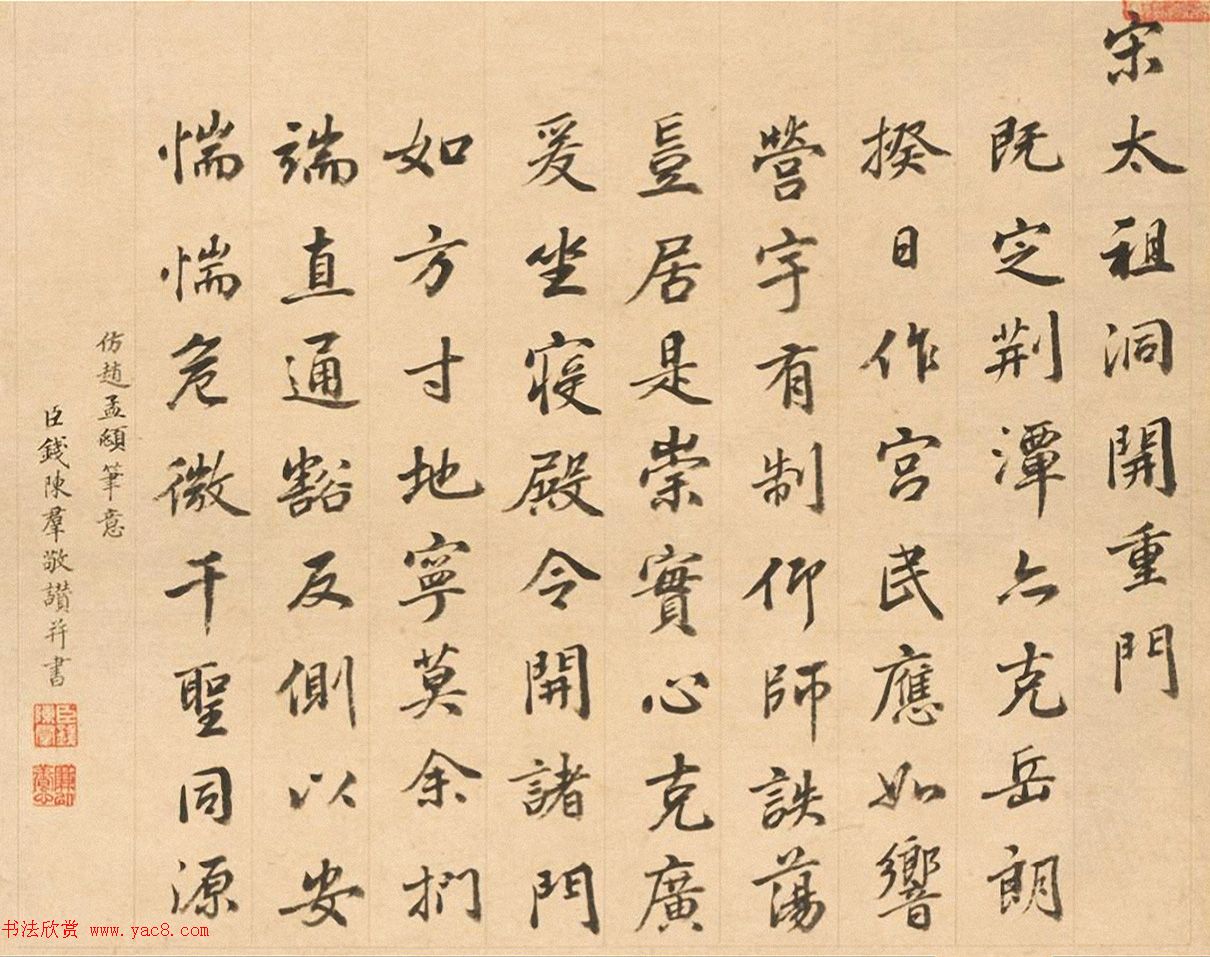 宋太祖洞開重門
既定荆潭亦克岳朗
揆日作宮民應如響
營宇有制仰師詄蕩
豈居是崇實心克廣
爰坐寝殿令開諸門
如方寸地寧莫余捫
端直通豁反側以安
惴惴危微千聖同源
仿趙孟頫筆意
臣錢陳羣敬讃并書
书法欣赏 www.yac8.com